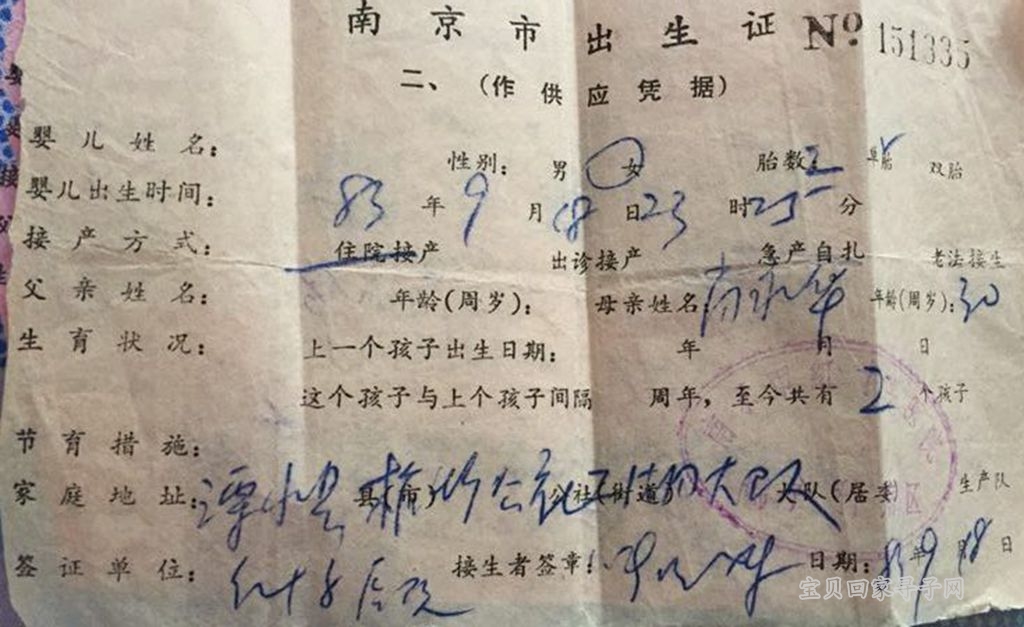 南京市出生证 No 151335
二、(作供应凭据)
婴儿姓名: 性别: 男 女 胎数: 2 单胎 双胎
婴儿出生时间: 83 年 9 月 18 日 23 时 25 分
接产方式: 住院接产 出诊接产 急产自扎 老法接生
父亲姓名: 年龄(周岁): 母亲姓名 年龄(周岁): 30
生育状况: 上一个孩子出生日期: 年 月 日
这个孩子与上个孩子间隔 周年,至今共有 2 个孩子
节育措施:
家庭地址: 溧水县 县(市) 公社 公社(街道) 大队 大队(居委) 生产队
签证单位: 红十字医院 接生者签章: 日期: 83 年 9 月 18 日
宝贝回家寻子网